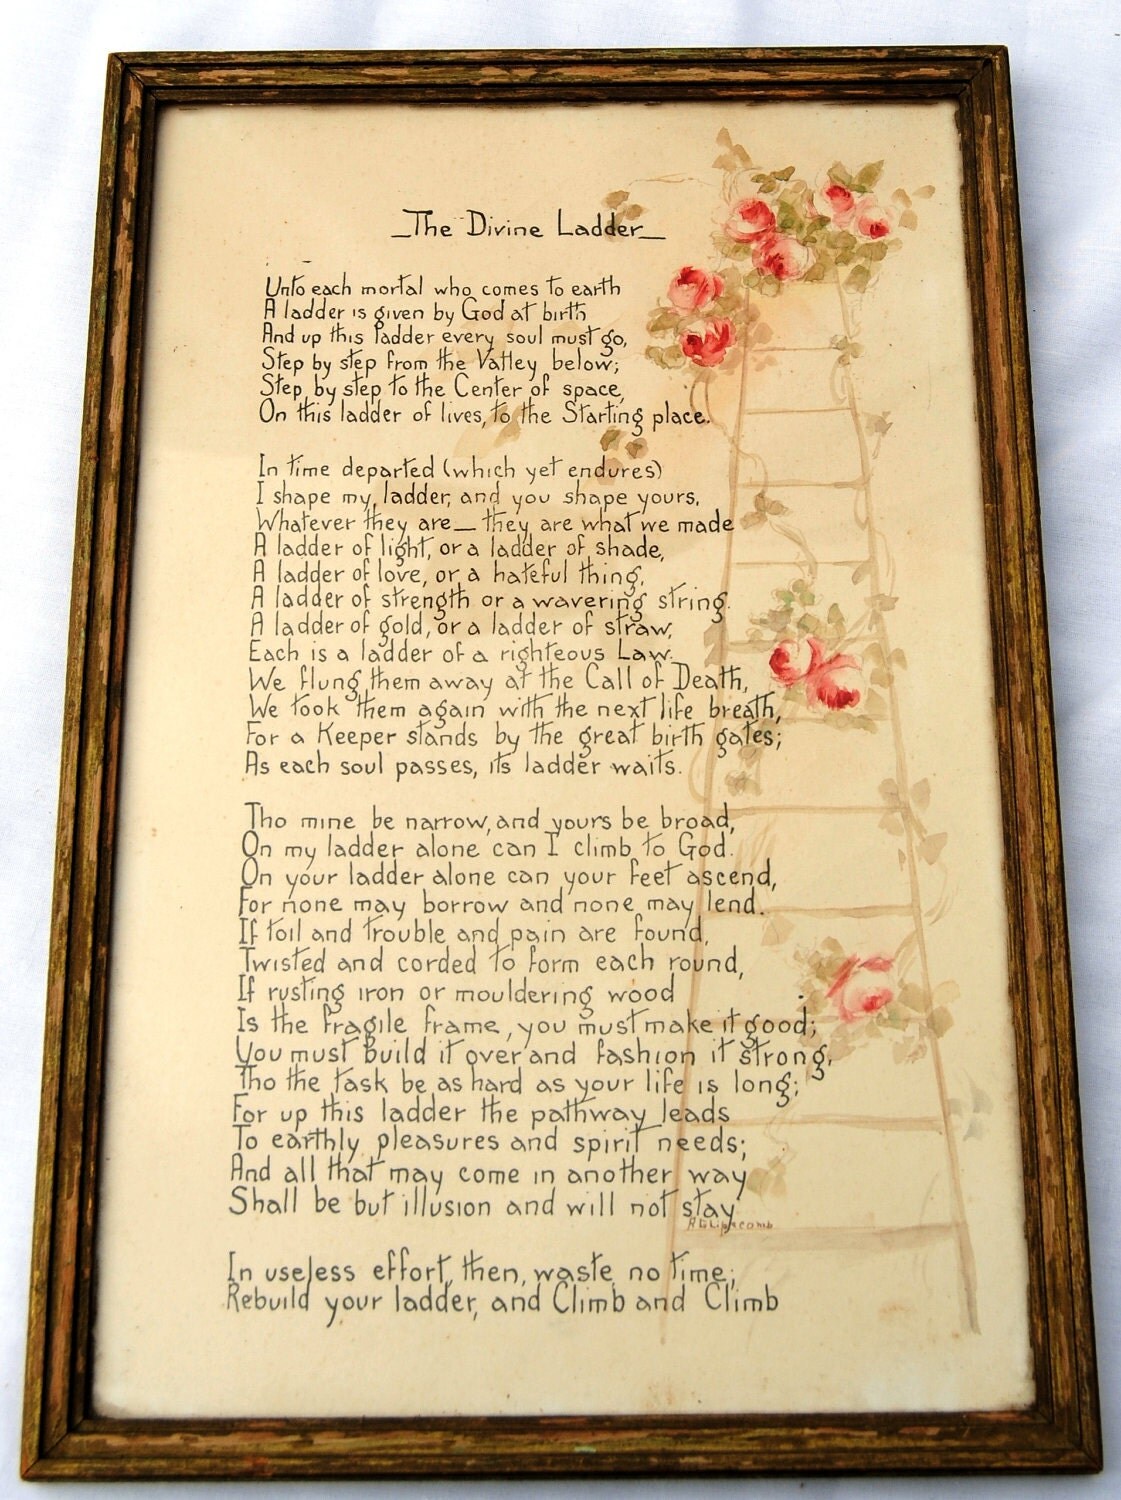 _The Divine Ladder_
Unto each mortal who comes to earth
A ladder is given by God at birth
And up this ladder every soul must go,
Step by step from the Valley below;
Step by step to the Center of space,
On this ladder of lives, to the Starting place.
In time departed (which yet endures)
I shape my ladder, and you shape yours,
Whatever they are — they are what we made
A ladder of light, or a ladder of shade,
A ladder of love, or a hateful thing,
A ladder of strength or a wavering string.
A ladder of gold, or a ladder of straw,
Each is a ladder of a righteous Law.
We flung them away at the Call of Death,
We took them again with the next life breath,
For a Keeper stands by the great birth gates;
As each soul passes, its ladder waits.
Tho mine be narrow, and yours be broad,
On my ladder alone can I climb to God.
On your ladder alone can your feet ascend,
For none may borrow and none may lend.
If toil and trouble and pain are found,
Twisted and corded to form each round,
If rusting iron or mouldering wood
Is the fragile frame, you must make it good;
You must build it over and fashion it strong,
Tho the task be as hard as your life is long;
For up this ladder the pathway leads
To earthly pleasures and spirit needs;
And all that may come in another way
Shall be but illusion and will not stay
A G Lipscomb
In useless effort, then, waste no time;
Rebuild your ladder, and Climb and Climb